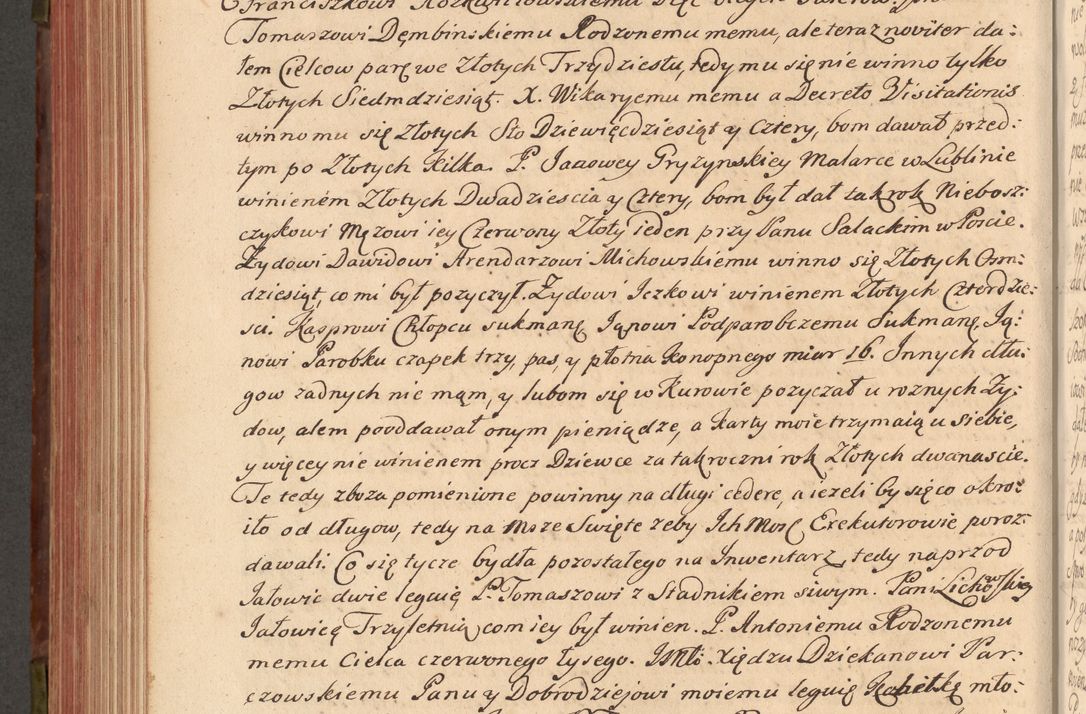 Franciszkowi
Tomaszowi Dęmbinskiemu Rodzonemu memu, ale teraz noviter da⸗
łem Cielcow parę we Złotych Trzydziestu, tedy mu się nie winno tylko
Złotych Siedmdziesiąt. X. Wikaryemu memu a Decreto Visitationis
winno mu się Złotych Sto Dziewięcdziesiąt y Cztery, bom dawał przed⸗
tym po Złotych Kilka. P. Janowey Pryzynskiey Malarce w Lublinie
winienem Złotych Dwadziescia y Cztery, bom był dał tak rok Niebosz⸗
czykowi Męzowi iey Czerwony Złoty ieden przy Panu Salackim w Poście.
Zydowi Dawidowi Arendarzowi Michowskiemu winno się Złotych Osm⸗
dziesiąt, co mi był pozyczył. Zydowi Iczkowi winienem Złotych Czterdzie⸗
sci. Kasprowi Chłopcu sukmanę Iąnowi Podparobczemu Sukmanę, Ią⸗
nowi Parobku czapek trzy, pas, y płotna konopnego miar 16. Innych dłu⸗
gow zadnych nie mąm, y lubom się w Kurowie pozyczał u roznych Zy⸗
dow, alem pooddawał onym pieniądze, a karty moie trzymaią u siebie,
y więcey nie winienem procz Dziewce za tak roczni rok Złotych dwanascie.
Te tedy zboza pomienione powinny na długi cedere, a iezeli by się co okro⸗
iło od długow, tedy na Msze Swięte zeby Ich Mosc Exekutorowie poroz⸗
dawali. Co się tycze bydła pozostałego na Inwentarz, tedy naprzod
Jałowic dwie leguię P. Tomaszowi z Stadnikiem siwym. Pani Lichowskiey
Jałowicę Trzyletnią, com iey był winien. P. Antoniemu Rodzonemu
memu Cielca czerwonego łysego. JMći Xiędzu Dziekanowi Par⸗
czowskiemu Panu y Dobrodziejowi moiemu leguię Kobiełkę mło⸗